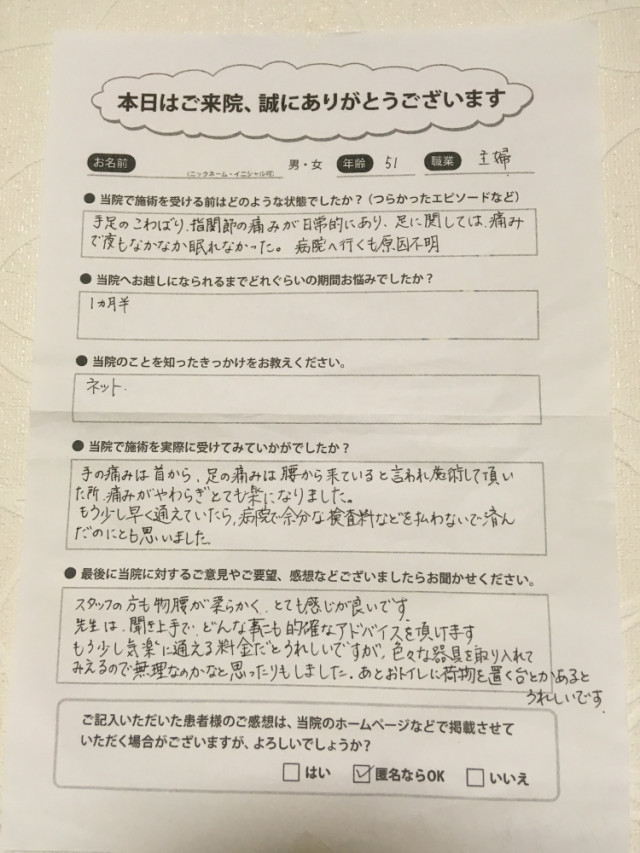 本日はご来院、誠にありがとうございます
お名前 (ニックネーム・イニシャル可) 男・女 年齢 51 職業 主婦
● 当院で施術を受ける前はどのような状態でしたか?(つらかったエピソードなど)
手足のこわばり、指関節の痛みが日常的にあり、足に関しては、痛み
で夜もなかなか眠れなかった。病院へ行くも原因不明
● 当院へお越しになられるまでどれぐらいの期間お悩みでしたか?
1ヵ月半
● 当院のことを知ったきっかけをお教えください。
ネット.
● 当院で施術を実際に受けてみていかがでしたか?
手の痛みは首から、足の痛みは腰から来ていると言われ施術して頂い
た所、痛みがやわらぎとても楽になりました。
もう少し早く通えていたら、病院で余分な検査料などを払わないで済ん
だのにとも思いました。
● 最後に当院に対するご意見やご要望、感想などございましたらお聞かせください。
スタッフの方も物腰が柔らかく、とても感じが良いです。
先生は、聞き上手で、どんな事にも的確なアドバイスを頂けます
もう少し気楽に通える料金だとうれしいですが、色々な器具を取り入れて
みえるので無理なのかなと思ったりもしました。あとおトイレに荷物を置く台とかあると
うれしいです.
ご記入いただいた患者様のご感想は、当院のホームページなどで掲載させて
いただく場合がございますが、よろしいでしょうか?
□ はい ☑ 匿名ならOK □ いいえ